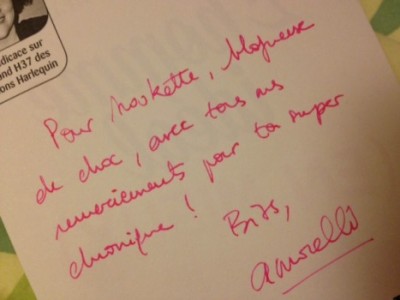 dicace sur
and H37 des
ons Harlequin
Pour Noukette, blogueuse
de choc, avec tous mes
remerciements pour ta super
chronique !
Bizs,
amorelli